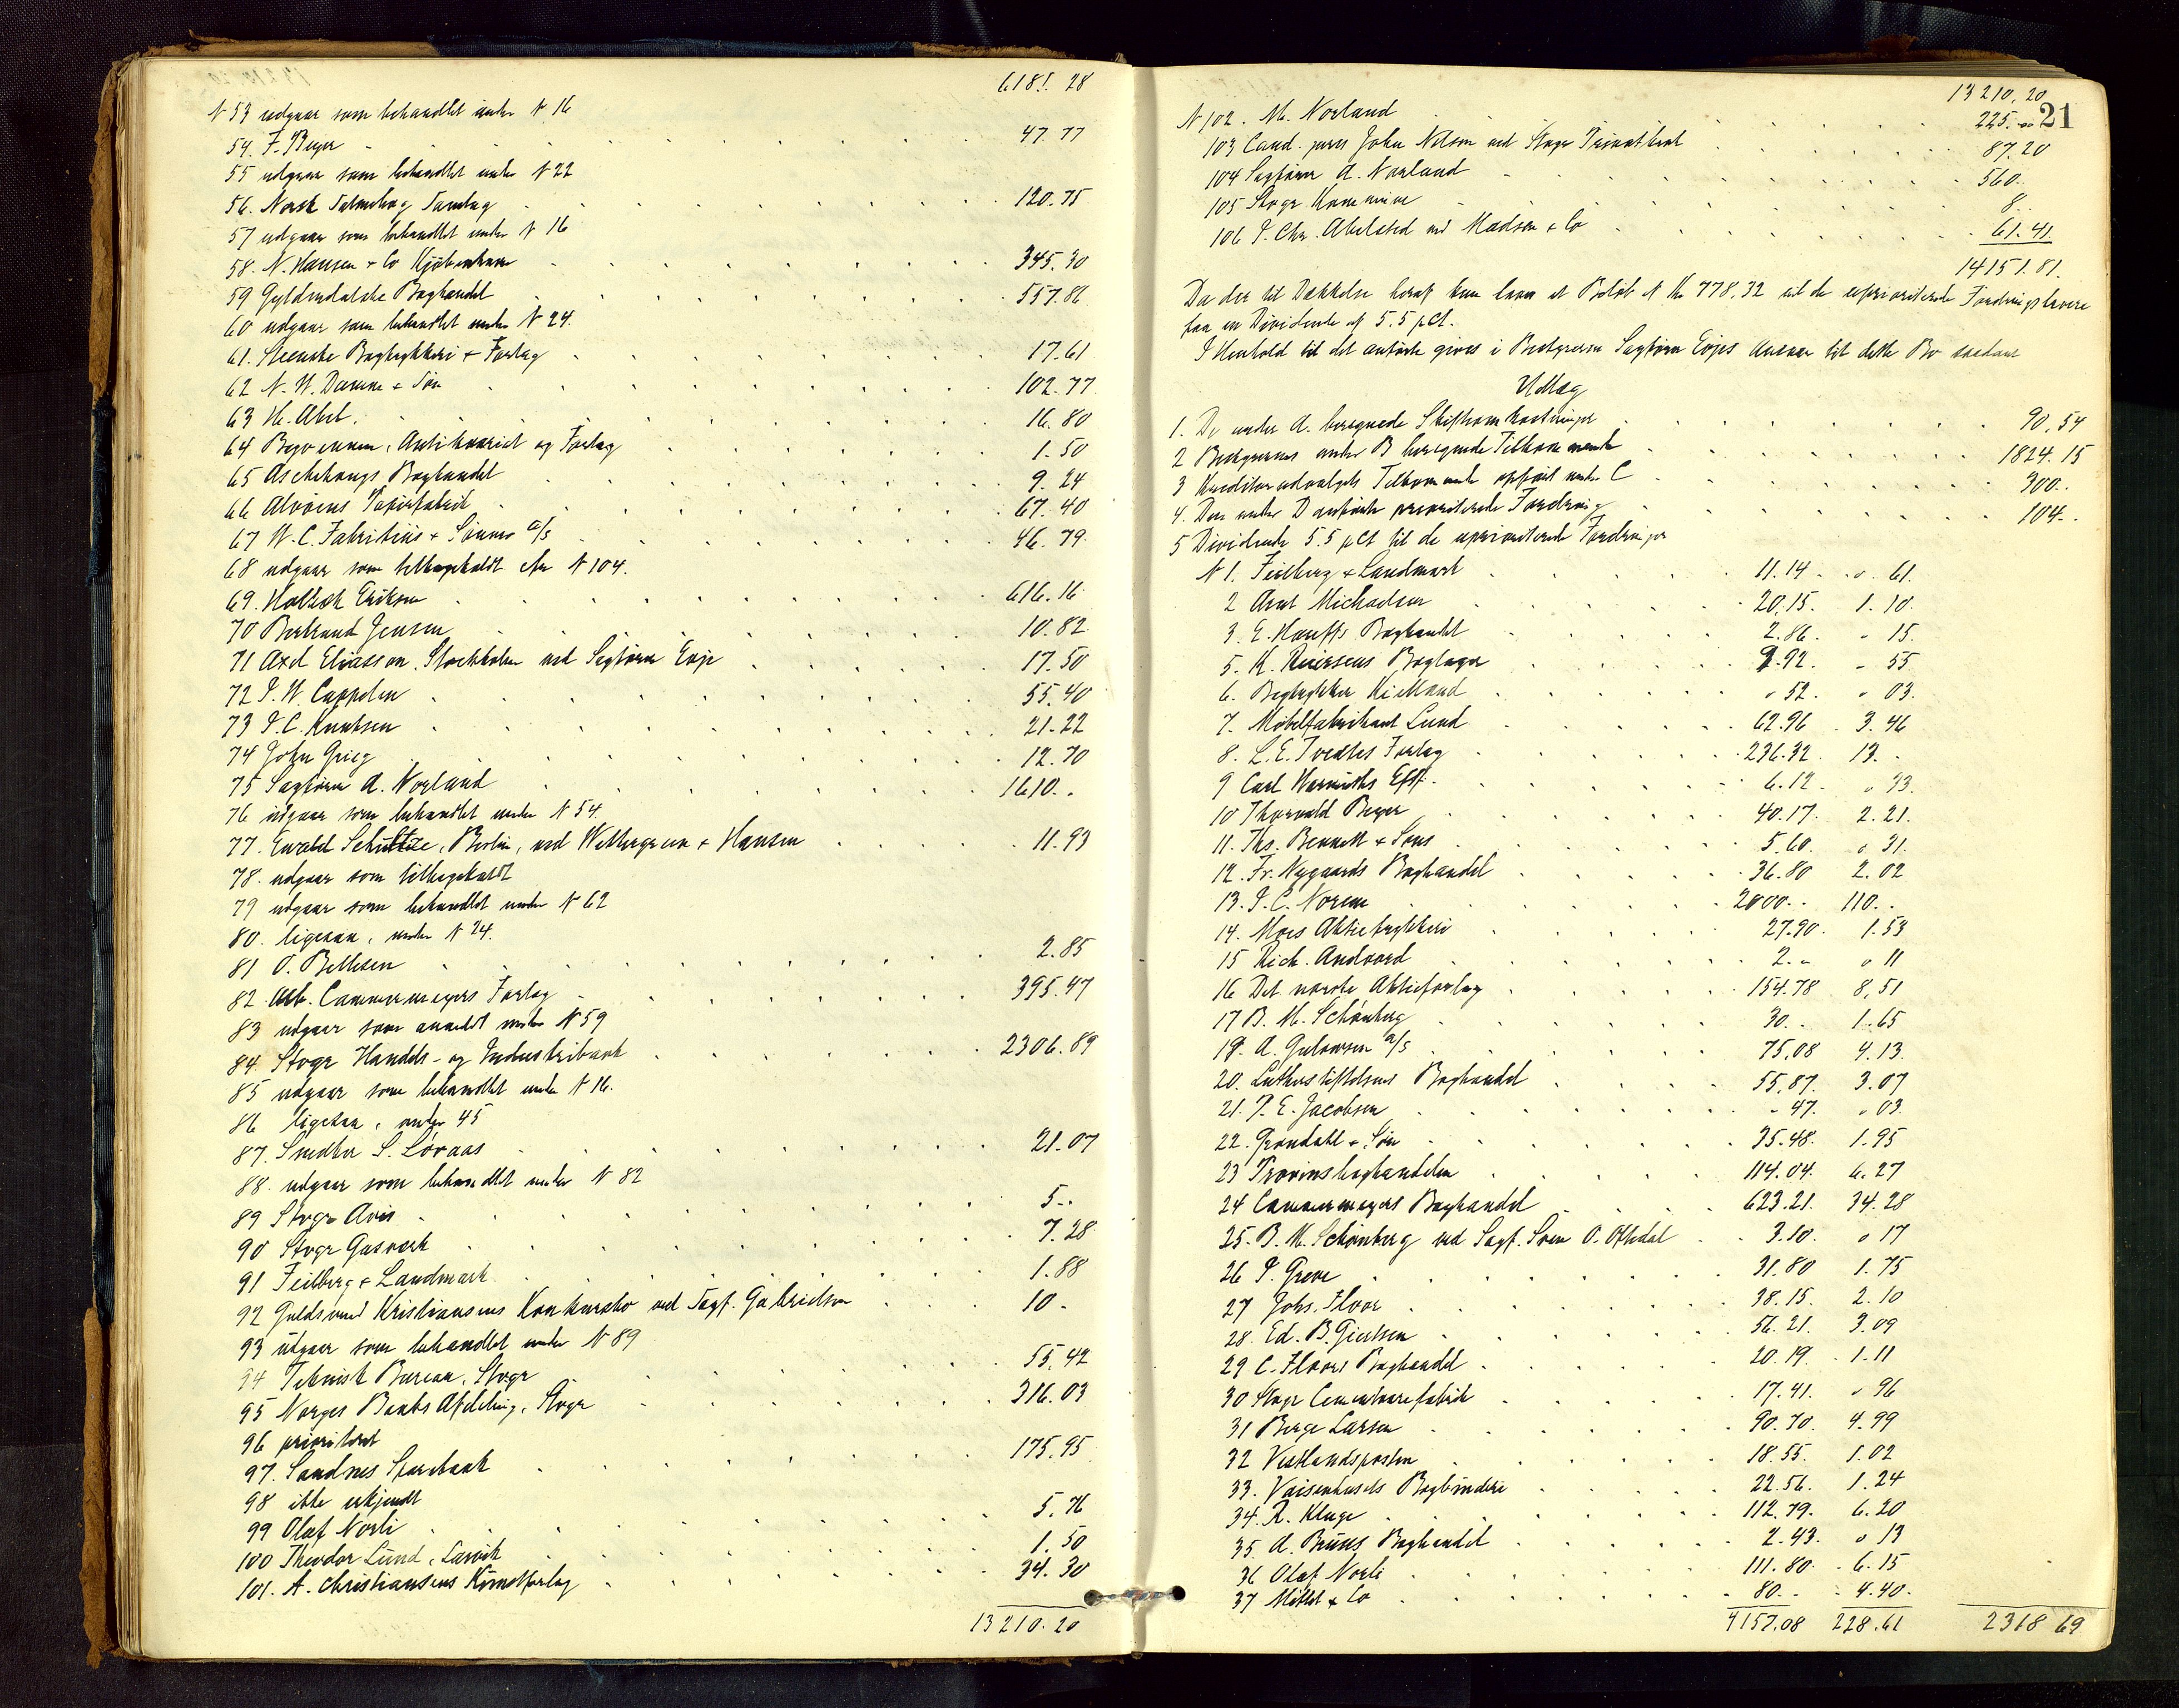 6185. 28
N 53 udgaar som behandlet under N 16
54. F. Beyer 47.77
55 udgaar som behandlet under N 22
56. Norsk Forlag 120.75
57 udgaar som behandlet under N 16
58. N. Hansen & Co Kjøbenhavn 345.30
59 Gyldendalske Boghandel 557.86
60 udgaar som behandlet under N 24.
61. Steenske Bogtrykkeri & Forlag 17.61
62 N. W. Damm & Søn 102.77
63 H. Abel. 16.80
64 Bogvennen, Antikvariat og Forlag 1.50
65 Aschehougs Boghandel 9.24
66 Alvøens Papirfabrik 67.40
67 W. C. Fabritius & Sønner a/s 46.79
68 udgaar som tilbagekaldt efter N 104.
69. Holbæk Eriksen 616.16
70 Bertrand Jensen 10.82
71 Axel Eliasson, Stockholm ved Sagfører Eoje 17.50
72 J. W. Cappelen 55.40
73 J. C. Knudsen 21.22
74 John Grieg 12.70
75 Sagfører A. Norland 1610..
76 udgaar som behandlet under N 54.
77. Ewald Schultze, Berlin, ved Wettergreen & Hansen 11.93
78. udgaar som tilbagekaldt
79 udgaar som behandlet under N 62
80. ligesaa, under N 24.
81 O. Bellesen 2.85
82 Alb. Cammermeyers Forlag 395.47
83 udgaar som anmeldt under N 59
84. Stvgr Handels- og Industribank 2306.89
85 udgaar som behandlet under N 16.
86 ligesaa, under 45
87. Snedker S. Lövaas 21.07
88. udgaar som behandlet under N 82
89 Stvgr Avis 5..
90 Stvgr Gasværk 7.28
91 Feilberg & Landmark 1.88
92 Guldsmed Kristiansens Konkursbo ved Sagf. Gabrielsen 10.
93 udgaar som behandlet under N 89
94 Teknisk Bureau, Stvgr 55.42
95 Norges Banks Afdeling, Stvgr 316.03
96 prioritert
97. Sandnes Sparebank 175.95
98 ikke erkjendt
99 Olaf Norli 5.76
100 Theodor Lund, Larvik 1.50
101. A. Christiansens Kunstforlag 34.30
13210.20
13210.20
21
N 102. M. Norland 225.
103 Cand. juris John Nilson ved Stvgr Privatbank 87.20
104 Sagfører A. Norland 560.
105 Stvgr Kommune 8.
106 J. Chr. Abelsted ved Madsen & Co 61.41.
14151.81.
Da der til Dækkelse heraf kun haves et Beløb af Kr 778.32 vil de uprioriterede Fordringshavere
faa en Dividende af 5.5 pCt.
I Henhold til det anførte gives i Bestyreren Sagfører Eojes Ansvar til dette Bo saadant
Udlæg
1. De under A. beregnede Skifteomkostninger 90.54
2 Bestyrerens under B beregnede Tilkommende 1824.15
3 Kreditorudvalgets Tilkommende opført under C 300..
4. Den under D anførte prioriterede Fordring 104..
5 Dividende 5.5 pCt til de uprioriterede Fordringer
N 1. Feilberg & Landmark 11.14 " 61.
2 Arnt Michaelsen 20.15. 1.10.
3. E. Hauffs Boghandel 2.86. " 15.
5. K. Reierseus Boglager 9.92. " 55
6. Bogtrykker Kielland " 52. " 03.
7. Møbelfabrikant Lund 62.96 3.46
8. L. E. Tvedtes Forlag 236.32 13..
9 Carl Warmuths Eftf. 6.12 " 33.
10 Thorvald Beyer 40.17. 2.21.
11. Ths. Bennett & Sons 5.60. " 31.
12. Fr. Nygaards Boghandel 36.80 2.02
13. J. C. Norem 2000.. 110..
14. Moss Aktietrykkeri 27.90. 1.53
15 Rich. Andvord 2.. " 11
16 Det norske Aktieforlag 154.78 8.51
17 B. M. Schønberg 30.. 1.65
19. A. Gulowsen a/s 75.08 4.13.
20. Lutherstiftelsens Boghandel 55.87. 3.07
21. P. E. Jacobsen " 47. " 03.
22. Grøndahl & Søn 35.48. 1.95
23 Provinsboghandelen 114.04. 6.27
24 Cammermeyers Boghandel 623.21. 34.28
25. B. M. Schønberg ved Sagf. Sven O. Oftedal 3.10. " 17
26 J. Greve 31.80 1.75
27 Johs. Floor 38.15. 2.10
28. Ed. B. Giertsen 56.21. 3.09
29 C. Floors Boghandel 20.19. 1.11
30 Stvgr Cementvarefabrik 17.41. " 96
31 Berge Larsen 90.70. 4.99
32 Vestlandsposten 18.55. 1.02
33. Vaisenhusets Bogbinderi 22.56. 1.24
34. R. Kluge 112.79. 6.20
35. A. Bruns Boghandel 2.43. " 13
36 Olaf Norli 111.80. 6.15
37 Mittet & Co 80.. 4.40.
4157.08 228.61 2318 69